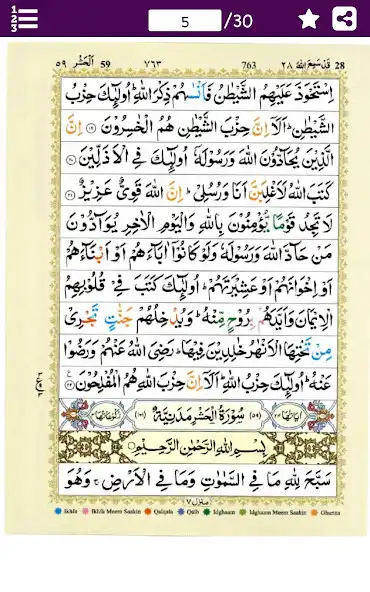 123 5 /30
٥٩ اَلْحَشْر 59 ٧٦٣ 763 قَدْ سَمِعَ اللّٰهُ ٢٨ 28
اِسْتَحْوَذَ عَلَيْهِمُ الشَّيْطٰنُ فَاَنْسٰىهُمْ ذِكْرَ اللّٰهِ ؕ اُولٰٓئِكَ حِزْبُ
الشَّيْطٰنِ ؕ اَلَاۤ اِنَّ حِزْبَ الشَّيْطٰنِ هُمُ الْخٰسِرُوْنَ ﴿۱۹﴾ اِنَّ
الَّذِيْنَ يُحَآدُّوْنَ اللّٰهَ وَرَسُوْلَهٗۤ اُولٰٓئِكَ فِى الْاَذَلِّيْنَ ﴿۲۰﴾
كَتَبَ اللّٰهُ لَاَغْلِبَنَّ اَنَا وَرُسُلِىْ ؕ اِنَّ اللّٰهَ قَوِىٌّ عَزِيْزٌ ﴿۲۱﴾
لَا تَجِدُ قَوْمًا يُّؤْمِنُوْنَ بِاللّٰهِ وَالْيَوْمِ الْاٰخِرِ يُوَآدُّوْنَ
مَنْ حَآدَّ اللّٰهَ وَرَسُوْلَهٗ وَلَوْ كَانُوْۤا اٰبَآءَهُمْ اَوْ اَبْنَآءَهُمْ
اَوْ اِخْوَانَهُمْ اَوْ عَشِيْرَتَهُمْ ؕ اُولٰٓئِكَ كَتَبَ فِىْ قُلُوْبِهِمُ
الْاِيْمَانَ وَاَيَّدَهُمْ بِرُوْحٍ مِّنْهُ ؕ وَيُدْخِلُهُمْ جَنّٰتٍ تَجْرِىْ
مِنْ تَحْتِهَا الْاَنْهٰرُ خٰلِدِيْنَ فِيْهَا ؕ رَضِىَ اللّٰهُ عَنْهُمْ وَرَضُوْا
عَنْهُ ؕ اُولٰٓئِكَ حِزْبُ اللّٰهِ ؕ اَلَاۤ اِنَّ حِزْبَ اللّٰهِ هُمُ الْمُفْلِحُوْنَ ﴿۲۲﴾
(٥٩) سُوْرَةُ الْحَشْرِ مَدَنِيَّةٌ (١٠١)
بِسْمِ اللّٰهِ الرَّحْمٰنِ الرَّحِيْمِ
سَبَّحَ لِلّٰهِ مَا فِى السَّمٰوٰتِ وَمَا فِى الْاَرْضِ ۚ وَهُوَ
منزل ٧
Ikhfa Ikhfa Meem Saakin Qalqala Qalb Idghaam Idghaam Meem Saakin Ghunna